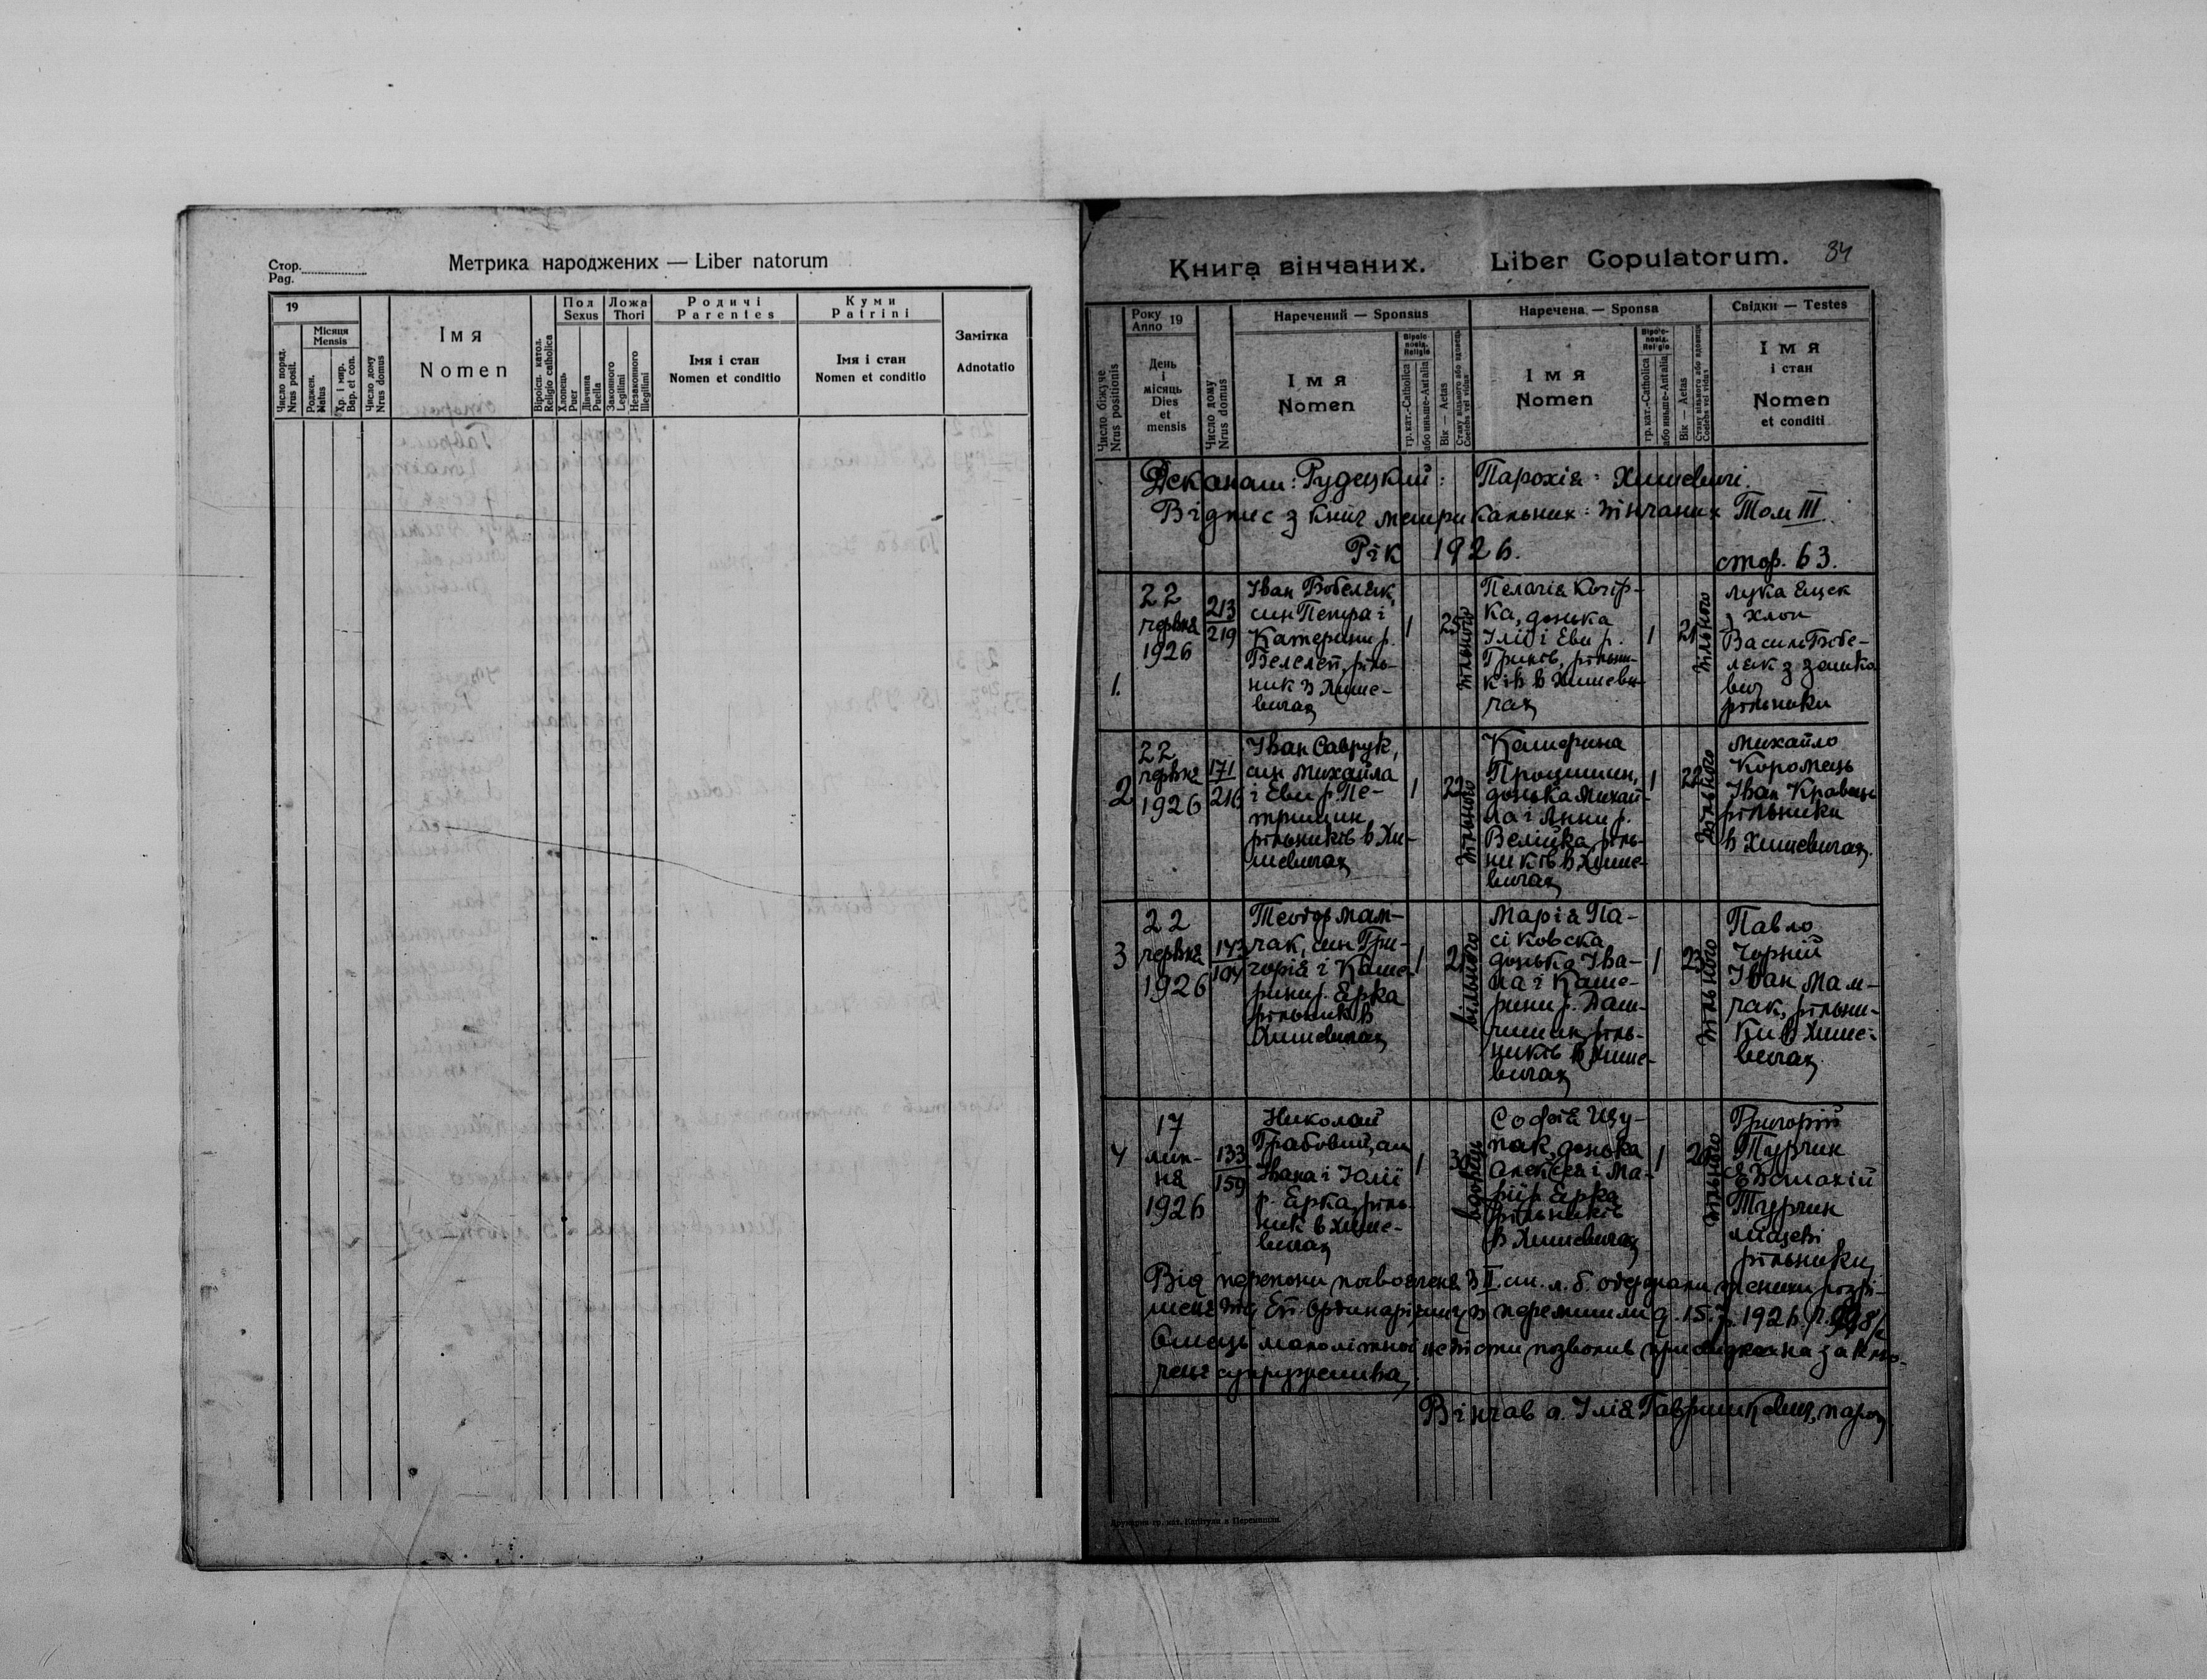 Стор.
Pag.
Метрика народжених — Liber natorum
19
Місяця
Mensis
Число поряд.
Nrus posit.
Роджен.
Natus
Хр. і мир.
Bap. et con.
Число дому
Nrus domus
Імя
Nomen
Віроісп. катол.
Religio catholica
Пол
Sexus
Хлопець
Puer
Дівчина
Puella
Ложа
Thori
Законного
Legitimi
Незаконного
Illegitimi
Родичі
Parentes
Імя і стан
Nomen et conditio
Куми
Patrini
Імя і стан
Nomen et conditio
Замітка
Adnotatio
Книга вінчаних. Liber Copulatorum. 34
Число біжуче
Nrus positionis
Року
Anno 19
День
і
місяць
Dies
et
mensis
Число дому
Nrus domus
Наречений — Sponsus
Імя
Nomen
Religio
гр. кат.-Catholica
або иньше-Antalia
Вік — Aetas
Стану вільного або вдовець
Coelebs vel vidus
Наречена — Sponsa
Імя
Nomen
Religio
гр. кат.-Catholica
або иньше-Antalia
Вік — Aetas
Стану вільного або вдовець
Coelebs vel vidus
Свідки — Testes
Імя
і стан
Nomen
et conditi
Деканат: Рудецкий: Парохія: Хишевичі.
Відпис з книг метрикальних: вінчаних Том III
Рік 1926. стор. 63.
1.
22
червня
1926
213
219
Іван Бобеляк,
син Петра і
Катерини р.
Белелет, рль-
ник в Хише-
вичах
1
25
вільного
Пелагія
ка, донька
Ілії і Еви р.
Гриків, рільни-
ків в Хишеви-
чах
1
21
вільного
Лука Ецек
хлоп
Василь Бобе-
ляк з Зашко
вич
рільники
2
22
червня
1926
171
216
Іван Саврук,
син Михайла
і Еви р. Пе-
тришин
рільників в Хи-
шевичах
1
22
вільного
Катерина
Процишин,
донька Михай-
ла і Анни р.
Велійка, рль-
ників в Хише-
вичах
1
22
вільного
Михайло
Коромець
Іван Кравець
рільники
в Хишевичах.
3
22
червня
1926
Теодор Мам-
чак, син Гри-
горія і Кате-
рини р. Ерка
рільник в
Хишевичах
1
21
вільного
Марія Па-
сіковска
донька Іва-
на і Кате-
рини р.
рль-
ників в Хише-
вичах
1
23
вільного
Павло
Чорній
Іван Мам-
чак, рільни-
ки в Хише-
вичах
4
17
лип-
ня
1926
133
159
Николай
Грабовий, син
Івана і Юлії
р. Ерка, рль-
ник в Хише-
вичах
1
вдовець
Софія Цу-
пак, донька
Алексея і Ма-
рії р. Ерка
рільників
в Хишевичах
1
вільного
Григорій
Турчин
Евстахій
Турчин
рільники
Від перепони посвоячення в II ст. л. б. одержали розрі-
шенє Еп. Ординаріяту в Перемишли д. 15.7. 1926
Отець малолітної невісти позволив при свідках на заклю-
ченє супружества
Вінчав о. Ілія парох
Друкарня гр. кат. Капітули в Перемишли.